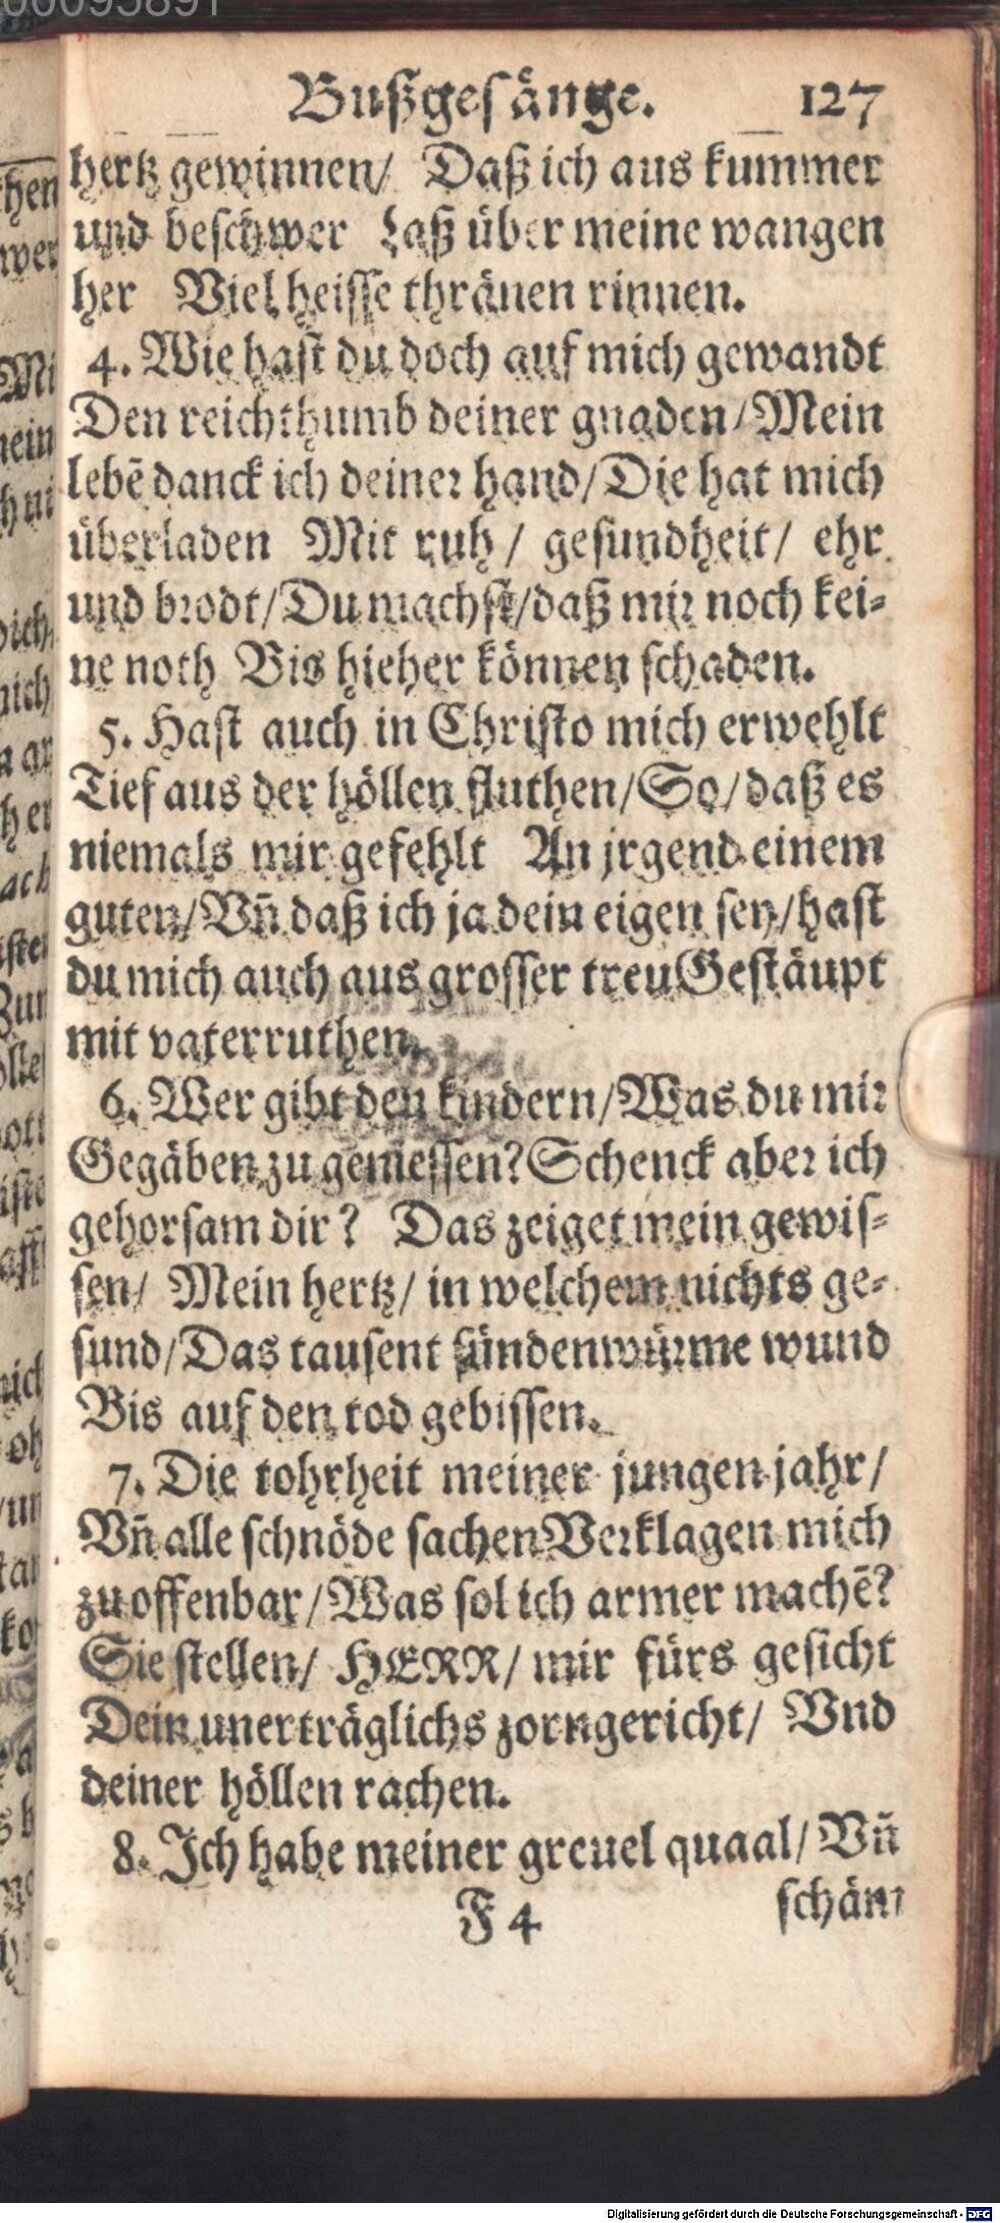 Bußgesänge. 127
hertz gewinnen/ Daß ich aus kummer
und beschwer Laß über meine wangen
her Viel heisse thränen rinnen.
4. Wie hast du doch auf mich gewandt
Den reichthumb deiner gnaden/Mein
lebē danck ich deiner hand/Die hat mich
überladen Mit ruh/ gesundheit/ ehr
und brodt/Du machst/daß mir noch kei-
ne noth Bis hieher können schaden.
5. Hast auch in Christo mich erwehlt
Tief aus der höllen fluthen/So/daß es
niemals mir gefehlt An jrgend einem
guten/Vñ daß ich ja dein eigen sey/hast
du mich auch aus grosser treu Gestäupt
mit vaterruthen.
6. Wer gibt den kindern/Was du mir
Gegäben zu geniessen? Schenck aber ich
gehorsam dir? Das zeiget mein gewis-
sen/ Mein hertz/ in welchem nichts ge-
sund/Das tausent sündenwürme wund
Bis auf den tod gebissen.
7. Die tohrheit meiner jungen jahr/
Vñ alle schnöde sachen Verklagen mich
zu offenbar/Was sol ich armer machē?
Sie stellen/ HERR/ mir fürs gesicht
Dein unerträglichs zorngericht/ Vnd
deiner höllen rachen.
8. Ich habe meiner greuel quaal/ Vñ
F 4 schäm
Digitalisierung gefördert durch die Deutsche Forschungsgemeinschaft - DFG